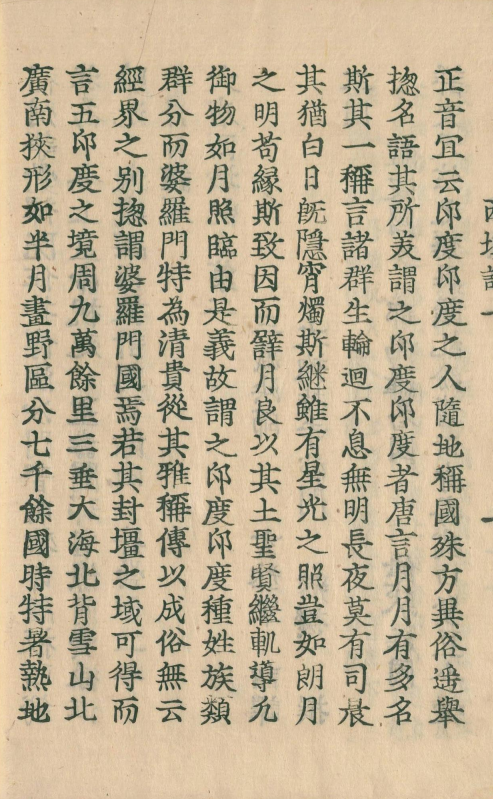 正音宜云印度印度之人隨地稱國殊方異俗遥舉
揔名語其所美謂之印度印度者唐言月月有多名
斯其一稱言諸群生輪迴不息無明長夜莫有司晨
其猶白日既隱宵燭斯継雖有星光之照豈如朗月
之明苟緣斯致因而譬月良以其土聖賢繼軌導凡
御物如月照臨由是義故謂之印度印度種姓族類
群分而婆羅門特為清貴從其雅稱傳以成俗無云
經界之别揔謂婆羅門國焉若其封壃之域可得而
言五印度之境周九萬餘里三垂大海北背雪山北
廣南狹形如半月畫野區分七千餘國時特暑熱地